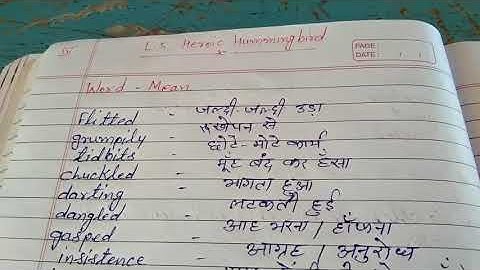 L.5. Heroic Hummingbird
PAGE:
DATE: / /
Word - Mean
Flitted - जल्दी-जल्दी उड़ा
grumpily - रूखेपन से
tidbits - छोटे-मोटे कार्य
chuckled - मूंह बंद कर हँसा
darting - भागता हुआ
dangled - लटकती हुई
gasped - आह भरना / हाँफना
insistence - आग्रह / अनुरोध